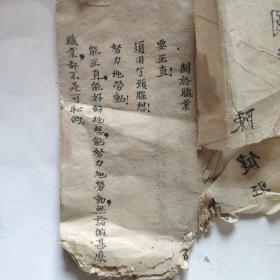 關於職業
要正直!
須用了頭腦想!
努力地勞動!
能正直,能好好地想,能努力地勞動,無論做甚麼
職業,許不是可恥的。
陳